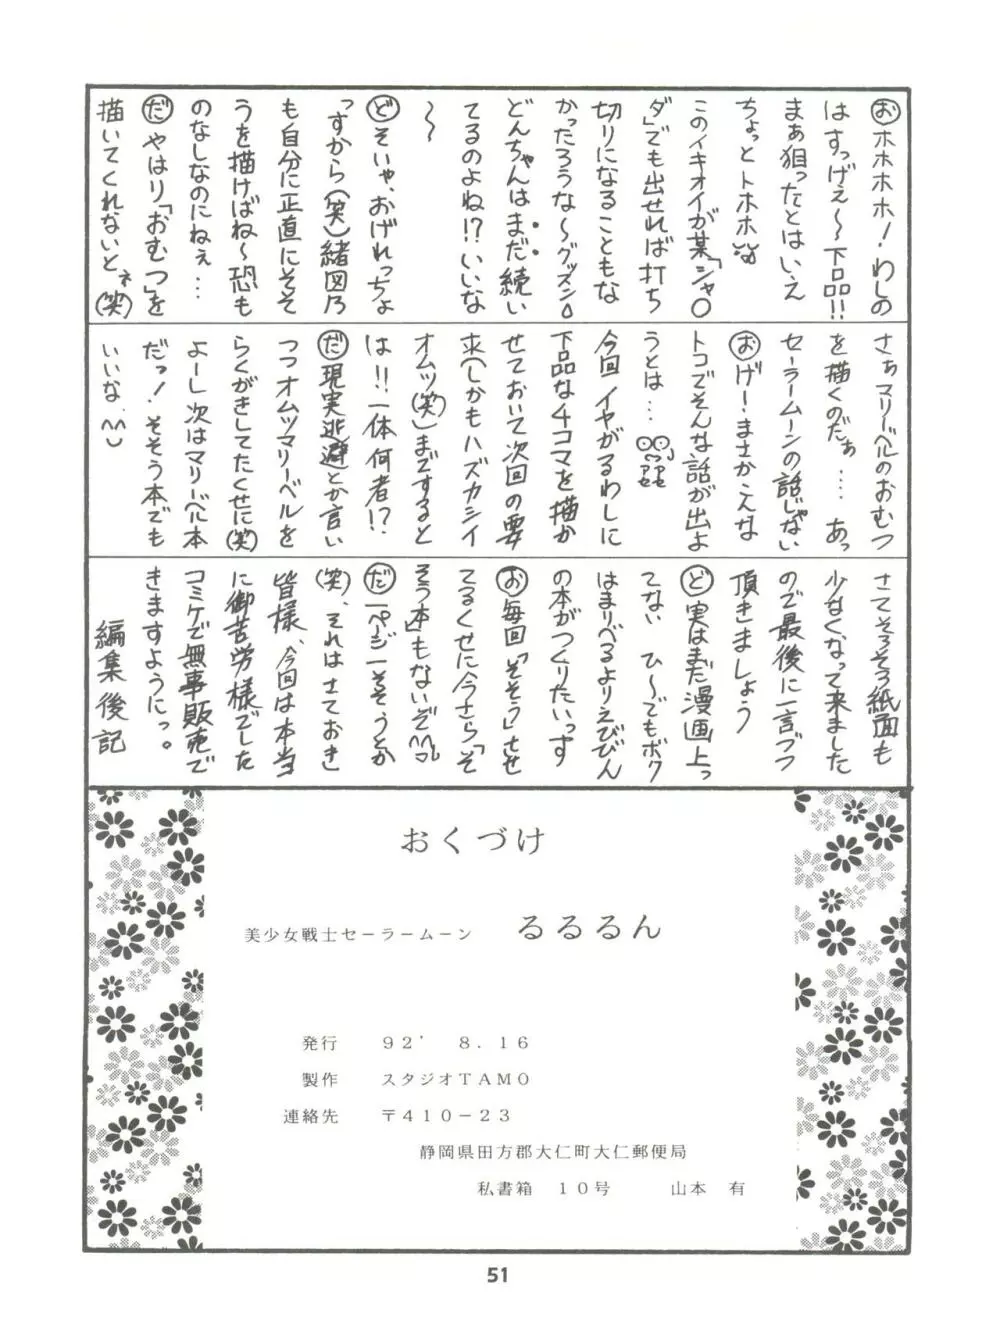 おホホホホ！わしの
はすっげぇ〜下品!!
まぁ狙ったとはいえ
ちょっとトホホ
このイキオイが某「シャ○
ダ」でも出せれば打ち
切りになることもな
かったろうな〜グッスン
どんちゃんはまだ続い
てるのよね!?いいな
〜〜
どそいや、おげれっちょ
っすから(笑)緒図乃
も自分に正直にそそ
うを描けばね〜恐も
のなしなのにねぇ…
だやはり「おむつ」を
描いてくれないとネ(笑)
さぁマリーベルのおむつ
を描くのだぁ…あっ
セーラームーンの話じゃない
おげー!まさかこんな
トコでそんな話が出よ
うとは…
今回イヤがるわしに
下品な4コマを描か
せておいて次回の要
求(しかもハズカシイ
オムツ(笑))までするとは
は!!一体何者!?
だ現実逃避とか言い
つつオムツマリーベルを
らくがきしてたくせに(笑)
よーし次はマリーベル本
だっ！そそう本でも
いいな、^^
さてそろそろ紙面も
少なくなって来ました
ので最後に一言づつ
頂きましょう
ど実はまだ漫画上っ
てない ひ〜でもボク
はまりべるよりえびびん
の本がつくりたいっす
お毎回「そそう」させ
てるくせに今さら「そ
そう本」もないぞ^^
だ一ページ一そそうとか
(笑)、それはさておき
皆様、今回は本当
に御苦労様でした
コミケで無事販売で
きますようにっ。
編集後記
おくづけ
美少女戦士セーラームーン るるるん
発行 92' 8.16
製作 スタジオTAMO
連絡先 〒410-23
静岡県田方郡大仁町大仁郵便局
私書箱 10号 山本 有
51